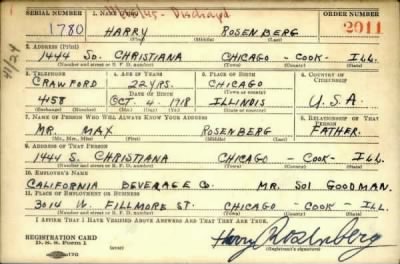 SERIAL NUMBER 1. NAME (Print) ORDER NUMBER
1780 HARRY ROSENBERG 2011
(First) (Middle) (Last)
2. ADDRESS (Print)
1444 SO. CHRISTIANA CHICAGO - COOK - ILL.
(Number and street or R. F. D. number) (Town) (County) (State)
3. TELEPHONE 4. AGE IN YEARS 5. PLACE OF BIRTH 6. COUNTRY OF CITIZENSHIP
CRAWFORD 22 YRS. CHICAGO
DATE OF BIRTH
458 OCT. 4, 1918 ILLINOIS U.S.A.
(Exchange) (Number) (Mo.) (Day) (Yr.) (State or country)
7. NAME OF PERSON WHO WILL ALWAYS KNOW YOUR ADDRESS 8. RELATIONSHIP OF THAT PERSON
MR. MAX ROSENBERG FATHER.
(Mr., Mrs., Miss) (First) (Middle) (Last)
9. ADDRESS OF THAT PERSON
1444 S. CHRISTIANA CHICAGO - COOK - ILL
(Number and street or R. F. D. number) (Town) (County) (State)
10. EMPLOYER'S NAME
CALIFORNIA BEVERAGE CO. MR. SOL GOODMAN.
11. PLACE OF EMPLOYMENT OR BUSINESS
3014 W. FILLMORE ST. CHICAGO - COOK - ILL.
(Number and street or R. F. D. number) (Town) (County) (State)
I AFFIRM THAT I HAVE VERIFIED ABOVE ANSWERS AND THAT THEY ARE TRUE.
REGISTRATION CARD
D. S. S. Form 1
Harry Rosenberg
(Registrant's signature)